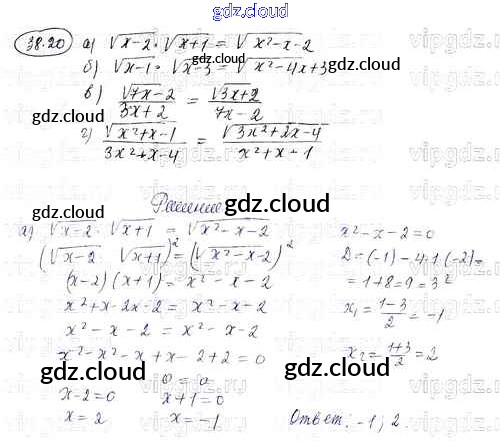 gdz.cloud
38.20 а) √x-2 · √x+1 = √x²-x-2
б) √x-1 · √x-3 = √x²-4x+3
в) √7x-2 / 3x+2 = √3x+2 / 7x-2
г) √x²+x-1 / 3x²+x-4 = √3x²+2x-4 / x²+x+1
gdz.cloud
gdz.cloud
Решение
gdz.cloud
а) √x-2 · √x+1 = √x²-x-2
(√x-2 √x+1)² = (√x²-x-2)²
(x-2)(x+1) = x²-x-2
x²+x-2x-2 = x²-x-2
x²-x-2 = x²-x-2
x²-x²-x+x-2+2=0
0=0
x-2=0 x+1=0
x=2 x=-1
x²-x-2=0
D=(-1)-4·1(-2)=
=1+8=9=3²
x₁=1-3/2=-1
x₂=1+3/2=2
Ответ: -1; 2.
gdz.cloud
gdz.cloud
gdz.cloud
gdz.cloud
vipgdz.com